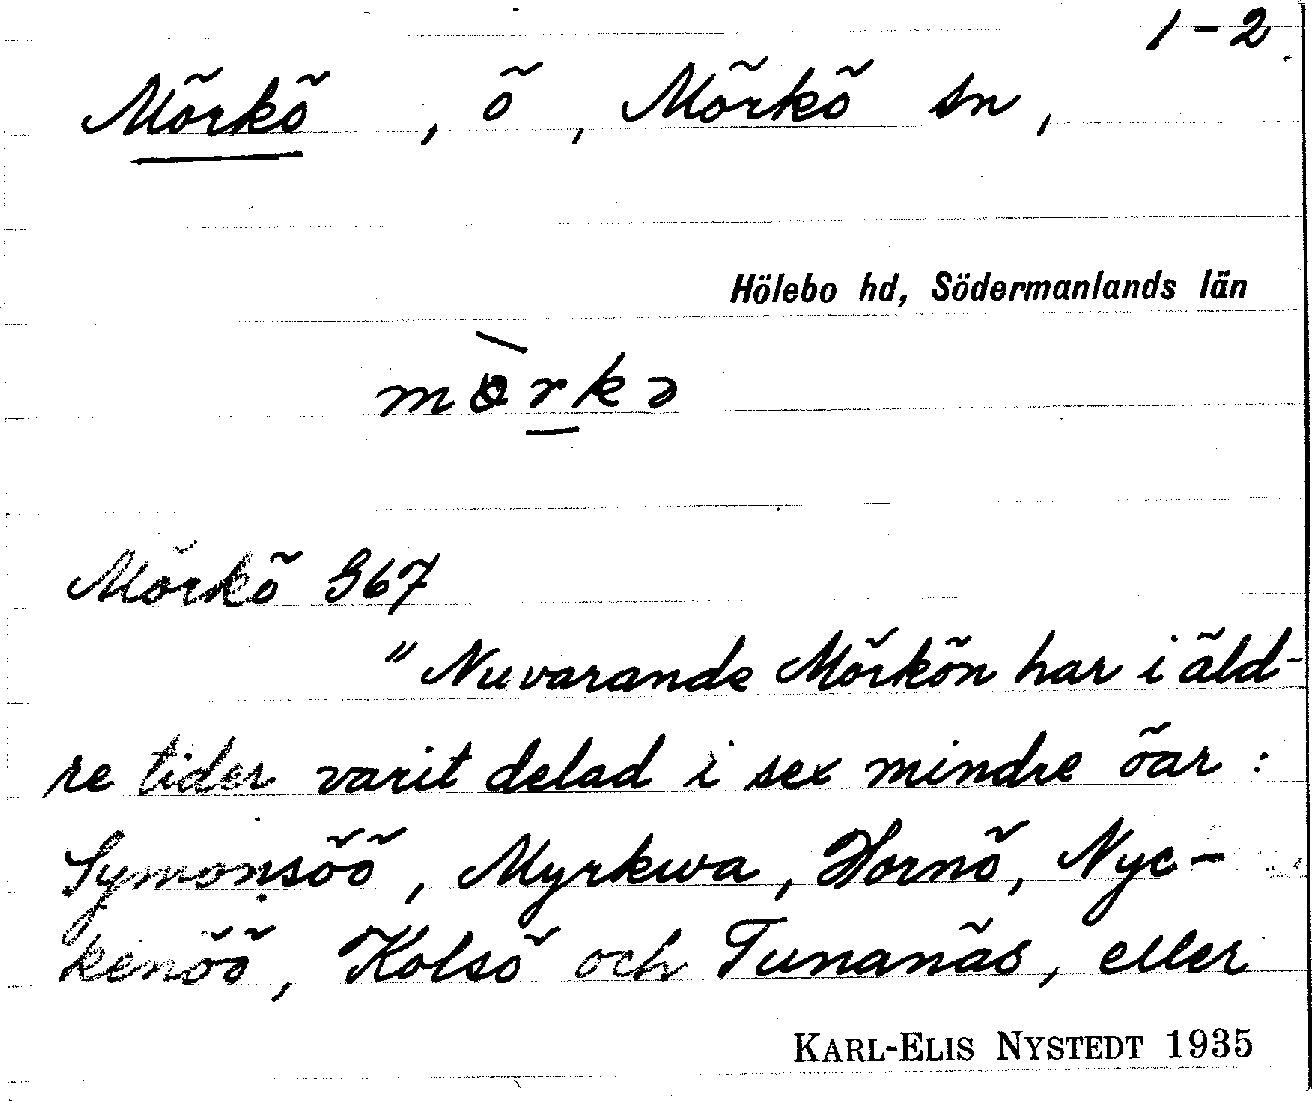 1-2
Mörkö, ö, Mörkö sn,
Hölebo hd, Södermanlands län
mòrkə
Mörkö 967
"Nuvarande Mörkön har i äld-
re tider varit delad i sex mindre öar:
Symonsöö, Myrkwa, Hornö, Nyc-
kenöö, Kolsö och Tunanäs, eller
KARL-ELIS NYSTEDT 1935